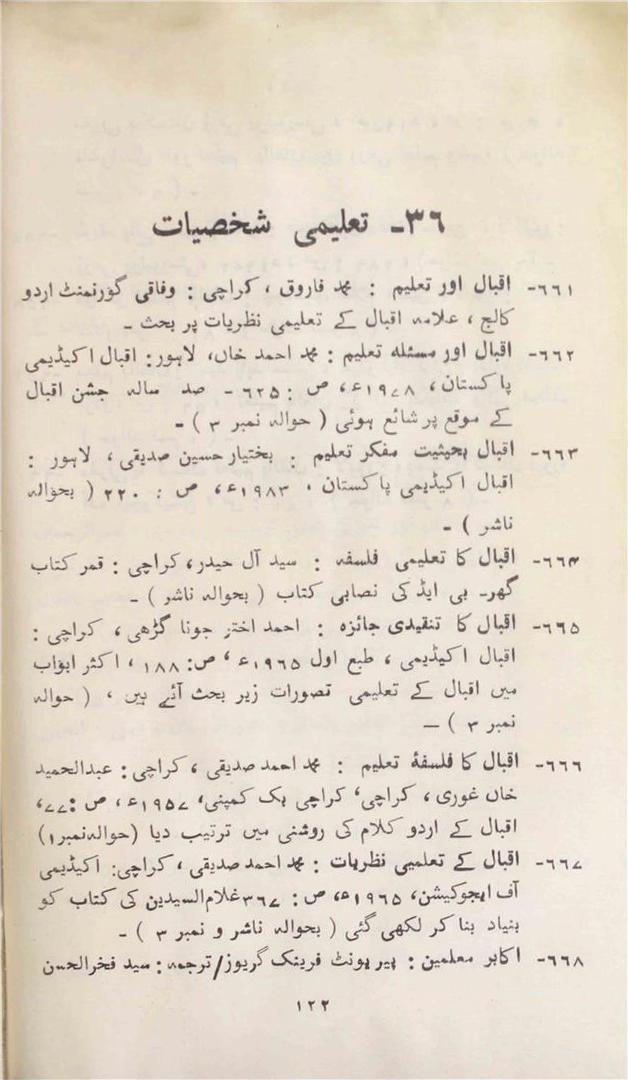 ۳۶۔ تعلیمی شخصیات
۶۶۱۔ اقبال اور تعلیم : محمد فاروق ، کراچی : وفاقی گورنمنٹ اردو
کالج ، علامہ اقبال کے تعلیمی نظریات پر بحث ۔
۶۶۲۔ اقبال اور مسئلہ تعلیم : محمد احمد خاں، لاہور: اقبال اکیڈیمی
پاکستان، ۱۹۷۸ء، ص : ۶۲۵ ۔ صد سالہ جشن اقبال
کے موقع پر شائع ہوئی ( حوالہ نمبر ۳ ) ۔
۶۶۳۔ اقبال بحیثیت مفکر تعلیم : بختیار حسین صدیقی ، لاہور :
اقبال اکیڈیمی پاکستان ، ۱۹۸۳ء، ص : ۲۲۰ ( بحوالہ
ناشر ) ۔
۶۶۴۔ اقبال کا تعلیمی فلسفہ : سید آل حیدر، کراچی : قمر کتاب
گھر۔ بی ایڈ کی نصابی کتاب ( بحوالہ ناشر ) ۔
۶۶۵۔ اقبال کا تنقیدی جائزہ : احمد اختر جونا گڑھی ، کراچی :
اقبال اکیڈیمی ، طبع اول ۱۹۶۵ء ، ص: ۱۸۸ ، اکثر ابواب
میں اقبال کے تعلیمی تصورات زیر بحث آئے ہیں ، ( حوالہ
نمبر ۳ ) ۔
۶۶۶۔ اقبال کا فلسفۂ تعلیم : محمد احمد صدیقی ، کراچی : عبدالحمید
خاں غوری ، کراچی، کراچی بک کمپنی، ۱۹۵۷ء، ص : ۷۷،
اقبال کے اردو کلام کی روشنی میں ترتیب دیا (حوالہ نمبر ۱)
۶۶۷۔ اقبال کے تعلمیی نظریات : محمد احمد صدیقی ، کراچی: اکیڈیمی
آف ایجوکیشن، ۱۹۶۵ء، ص : ۳۶۷ غلام السیدین کی کتاب کو
بنیاد بنا کر لکھی گئی ( بحوالہ ناشر و نمبر ۳ ) ۔
۶۶۸۔ اکابر معلمین : پیر پونٹ فرینک گریوز/ ترجمہ : سید فخرالحسن
۱۲۲